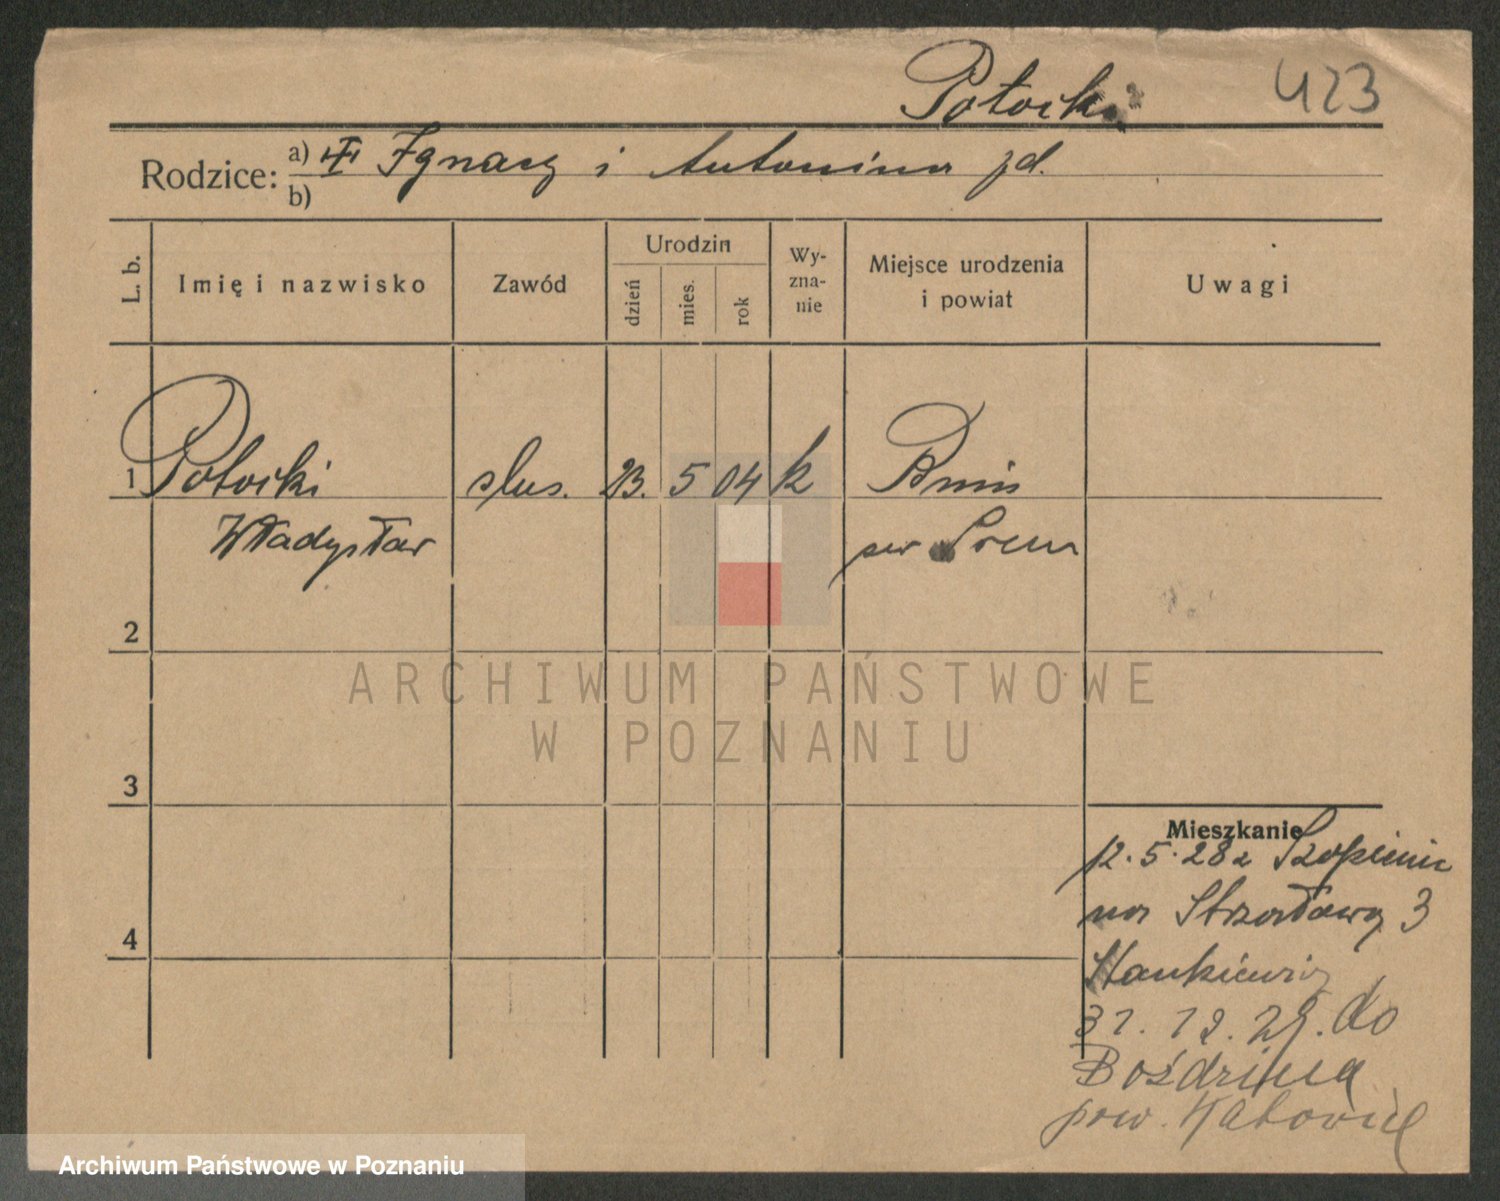 Potocki 423
Rodzice: a) Ignacy i Antonina żd.
b)
L. b. Imię i nazwisko Zawód Urodzin dzień mies. rok Wy-zna-nie Miejsce urodzenia i powiat Uwagi
1 Potocki ślus. 23. 5 04 k Bnin
Władysław pow Śrem
2
3
4
Mieszkanie
12.5.28 z Szopienic
na Strzałową 3
Stankiewicz
31. 12. 29. do
pow. Katowice
ARCHIWUM PAŃSTWOWE
W POZNANIU
Archiwum Państwowe w Poznaniu